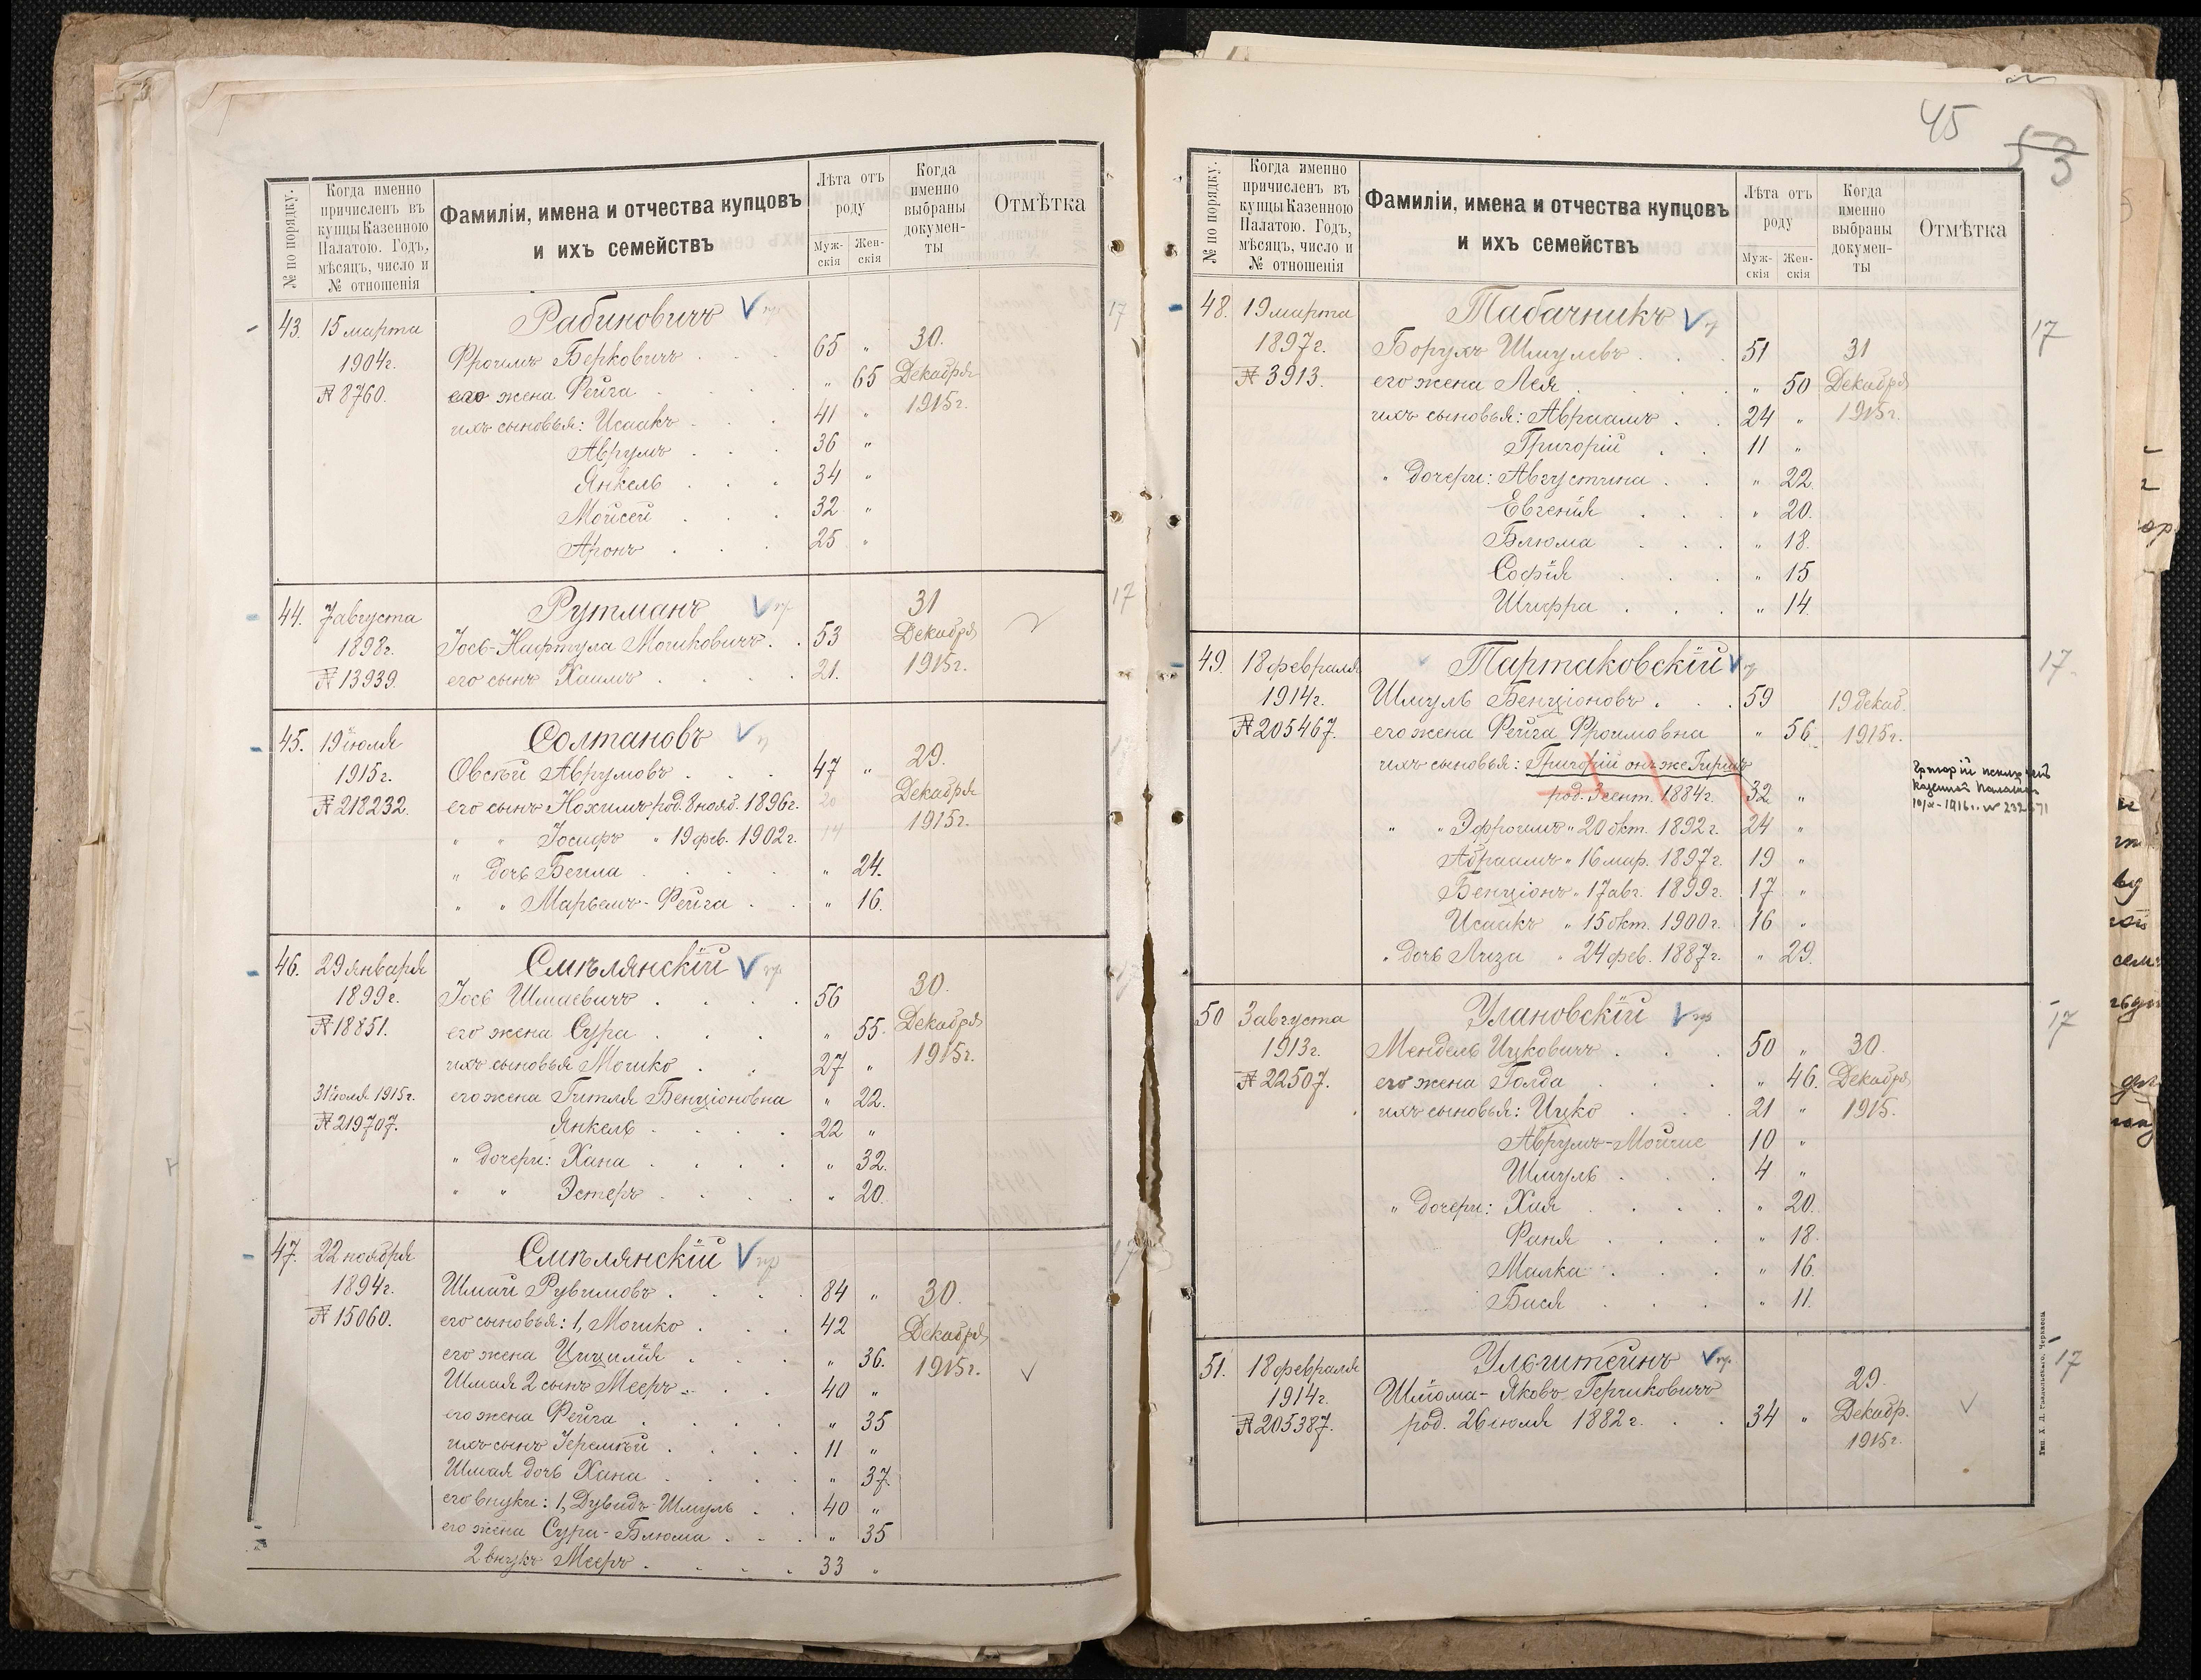 № по порядку.
Когда именно причисленъ въ купцы Казенною Палатою. Годъ, мѣсяцъ, число и № отношенія
Фамиліи, имена и отчества купцовъ и ихъ семействъ
Лѣта отъ роду
Муж-скія
Жен-скія
Когда именно выбраны докумен-ты
Отмѣтка
43. 15 марта Рабиновичъ
1904г. Фроимъ Берковичъ 65 " 30.
№ 8760. его жена Фейга " 65 Декабря
ихъ сыновья: Исаакъ 41 " 1915г.
Аврумъ 36 "
Янкель 34 "
Мойсей 32 "
Аронъ 25 "
17
44. 7 августа Рутманъ 31
1898г. Іось-Нафтула Мошковичъ 53 Декабря
№ 13939. его сынъ Хаимъ 21. 1915г.
17
45. 19 іюля Солтановъ 29.
1915г. Овсѣй Аврумовъ 47 " Декабря
№ 218232. его сынъ Нохимъ род. 8 нояб. 1896г. 20 1915г.
" " Іосифъ " 19 фев. 1902г. 14
" дочь Бейла " 24.
" " Марьемъ-Фейга " 16.
46. 29 января Смѣлянскій
1899г. Іось Шмаевичъ 56 30.
№ 18851. его жена Сура " 55. Декабря
ихъ сыновья Мошко 27 " 1915г.
31 іюля 1915г. его жена Гитля Бенціоновна " 22.
№ 219707. Янкель 22 "
" дочери: Хана " 32.
" " Эстеръ " 20.
17
47. 22 ноября Смѣлянскій
1894г. Шмай Рувимовъ 84 " 30.
№ 15060. его сыновья: 1, Мошко 42 Декабря
его жена Цицилія " 36. 1915г.
Шмая 2 сынъ Мееръ 40 "
его жена Фейга " 35
ихъ сынъ Іеремѣй 11 "
Шмая дочь Хана " 37.
его внуки: 1, Дувидъ-Шмуль 40 "
его жена Сура-Блюма " 35
2 внукъ Мееръ 33 "
17
45
53
№ по порядку.
Когда именно причисленъ въ купцы Казенною Палатою. Годъ, мѣсяцъ, число и № отношенія
Фамиліи, имена и отчества купцовъ и ихъ семействъ
Лѣта отъ роду
Муж-скія
Жен-скія
Когда именно выбраны докумен-ты
Отмѣтка
48. 19 марта Табачникъ 17
1897г. Борухъ Шмулевъ 51 31
№ 3913. его жена Лея " 50 Декабря
ихъ сыновья: Авраамъ 24 " 1915г.
Григорій 11 "
" дочери: Августина " 22
Евгенія " 20.
Блюма " 18.
Софія " 15
Шифра " 14.
49. 18 февраля Тартаковскій 17.
1914г. Шмуль Бенціоновъ 59 19 декаб.
№ 205467. его жена Фейга Фроимовна " 56. 1915г.
ихъ сыновья: Григорій онъ же Гиршъ
род. 3 сент. 1884г. 32 "
Григорій исключенъ
Казенной Палатой
10/X-1916г. № 232671
" " Эфроимъ " 20 окт. 1892г. 24 "
Абраамъ " 16 мар. 1897г. 19 "
Бенціонъ " 17 авг. 1899г. 17 "
Исаакъ " 15 окт. 1900г. 16 "
" дочь Лиза " 24 фев. 1887г. " 29.
50 3 августа Улановскій 17
1913г. Мендель Ицковичъ 50 " 30.
№ 22507. его жена Голда " 46. Декабря
ихъ сыновья: Ицко 21 " 1915.
Аврумъ-Мойше 10 "
Шмуль 4 "
" дочери: Хая " 20.
Раня " 18.
Малка " 16.
Бася " 11.
51. 18 февраля Ульштейнъ 17
1914г. Шлома-Яковъ Гершковичъ 29.
№ 205387. род. 26 іюля 1882г. 34 " Декабр.
1915г.